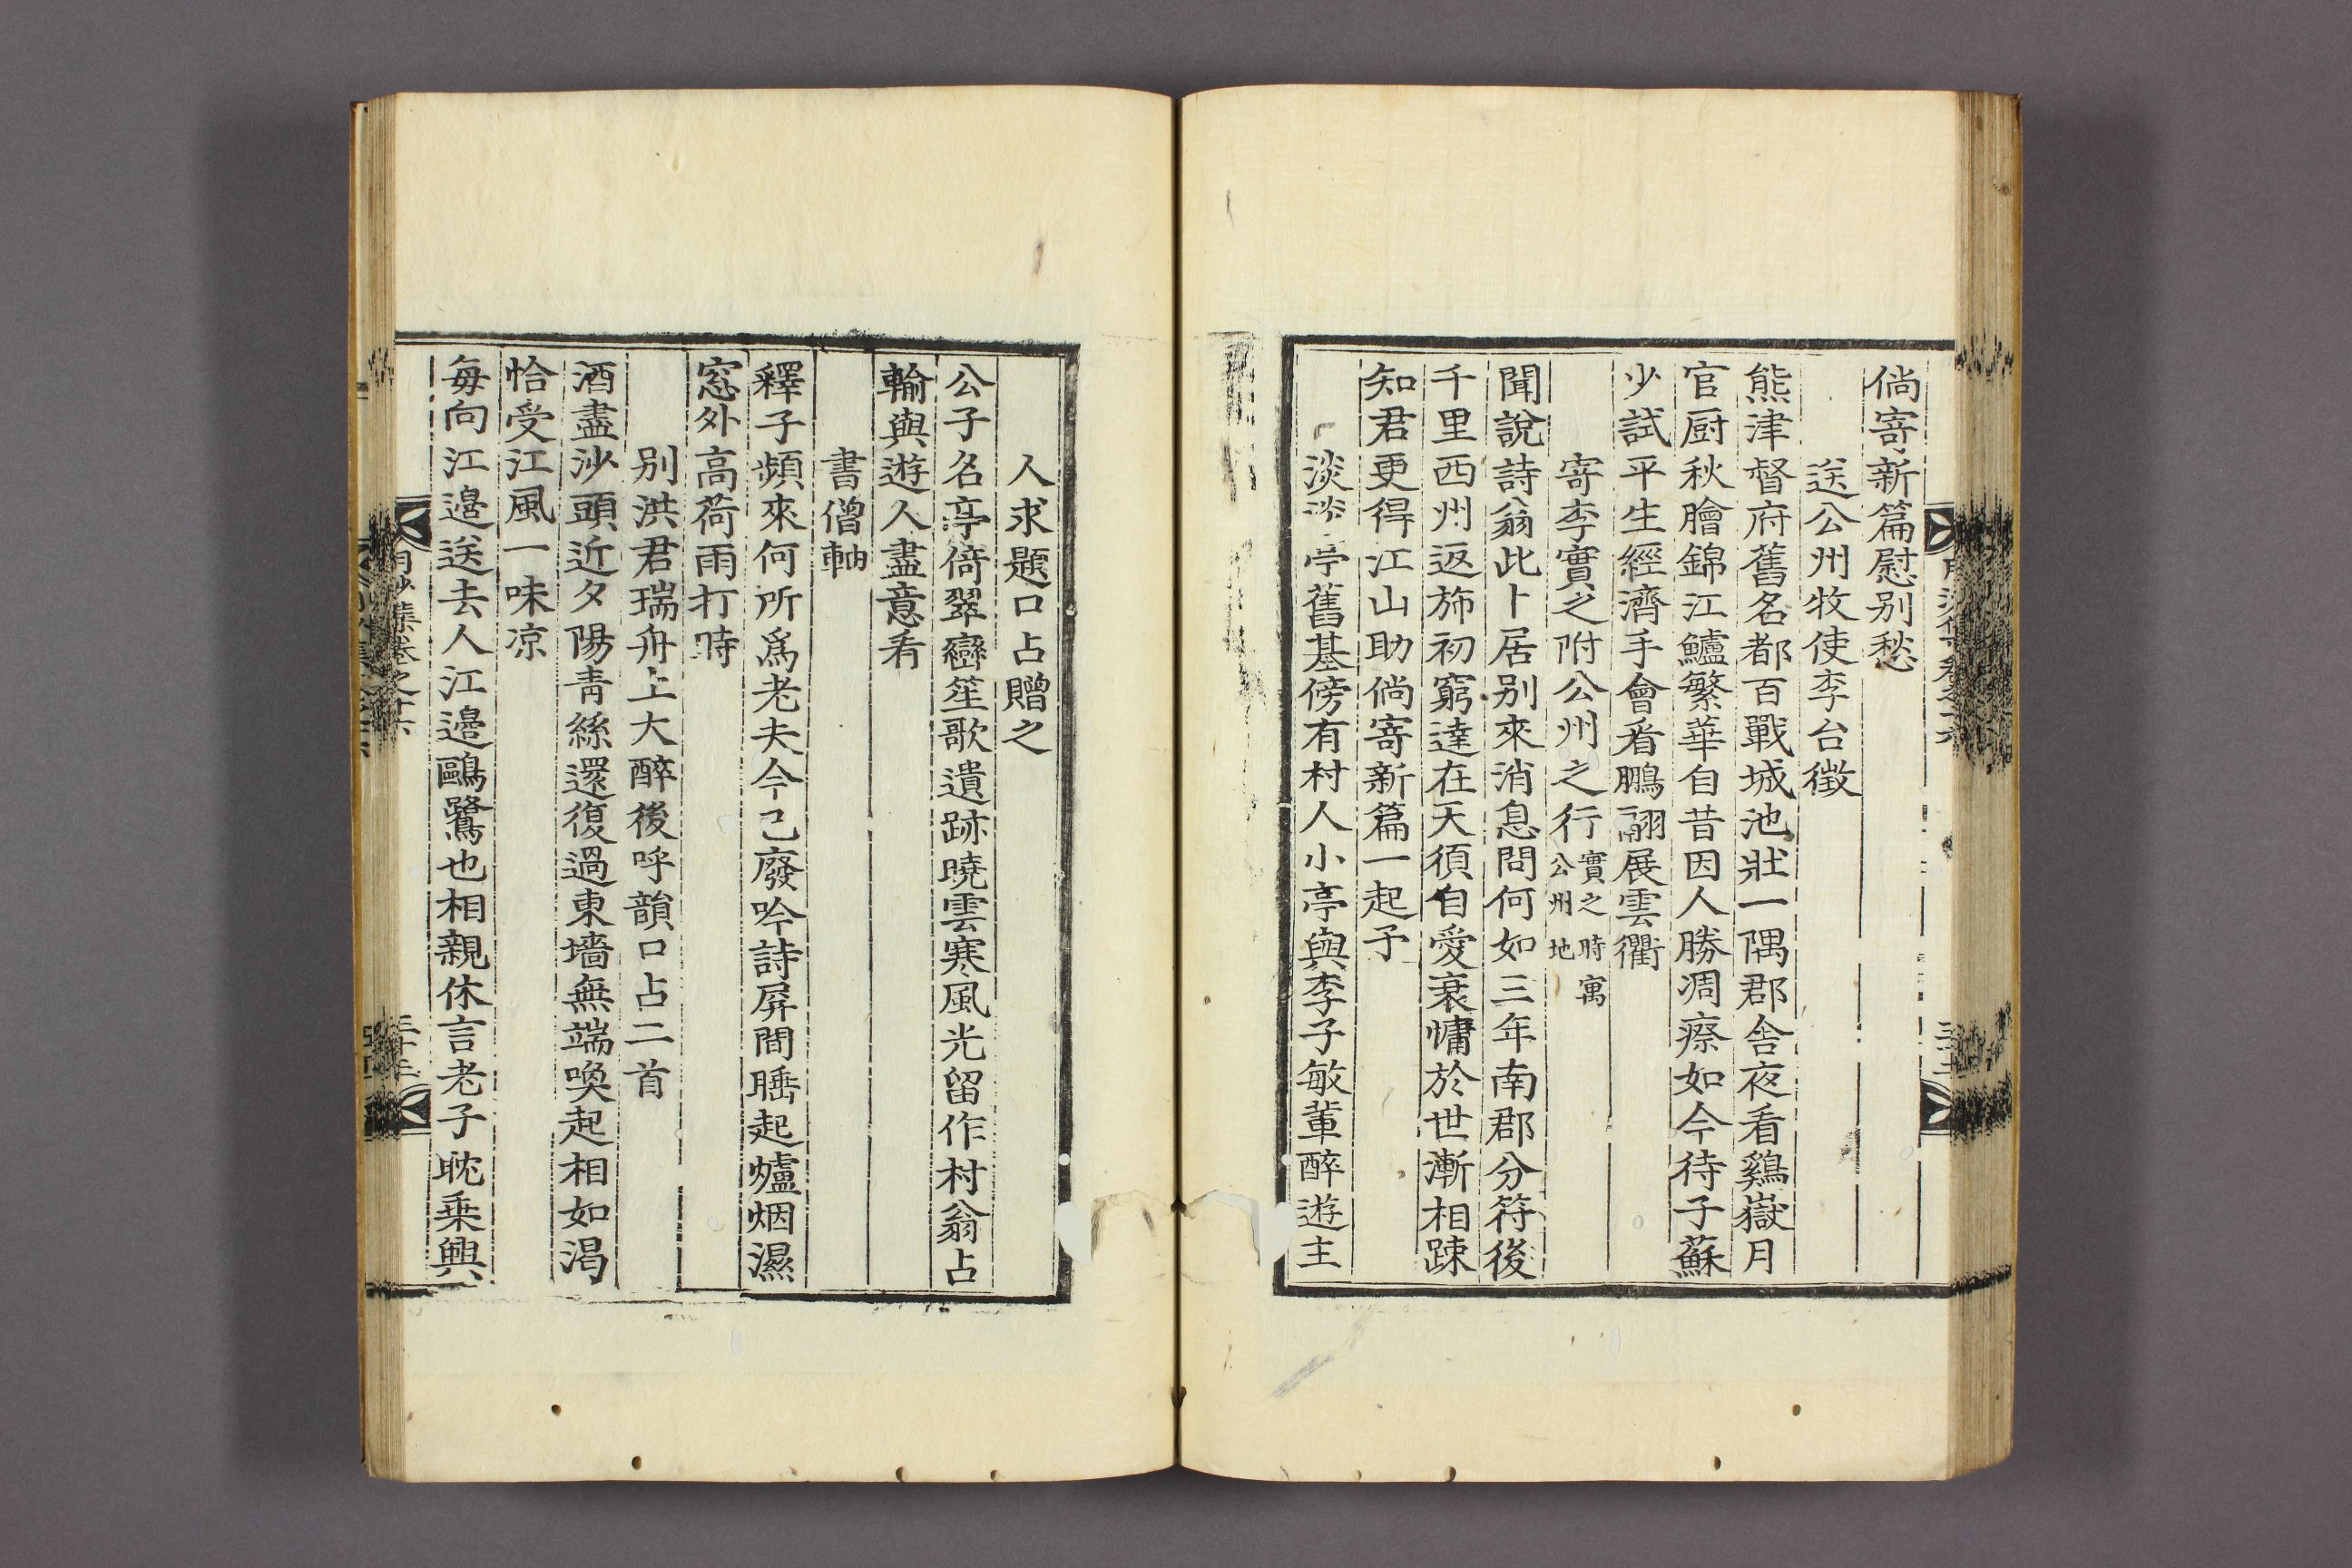 倘寄新篇慰别愁
送公州牧使李台徵
熊津督府舊名都百戰城池壯一隅郡舍夜看鷄嶽月
官厨秋膾錦江鱸繁華自昔因人勝凋瘵如今待子蘇
少試平生經濟手會看鵬翮展雲衢
寄李實之附公州之行實之時寓公州地
聞說詩翁此卜居别來消息問何如三年南郡分符後
千里西州返斾初窮達在天須自愛衰慵於世漸相踈
知君更得江山助倘寄新篇一起予
淡淡亭舊基傍有村人小亭與李子敏軰醉遊主
人求題口占贈之
公子名亭倚翠巒笙歌遺跡曉雲寒風光留作村翁占
輸與遊人盡意看
書僧軸
釋子頻來何所爲老夫今已廢吟詩屛間睡起爐烟濕
窓外高荷雨打時
别洪君瑞舟上大醉後呼韻口占二首
酒盡沙頭近夕陽靑絲還復過東墻無端喚起相如渴
恰受江風一味凉
每向江邊送去人江邊鷗鷺也相親休言老子耽乗興
月沙集卷之十六
三十三